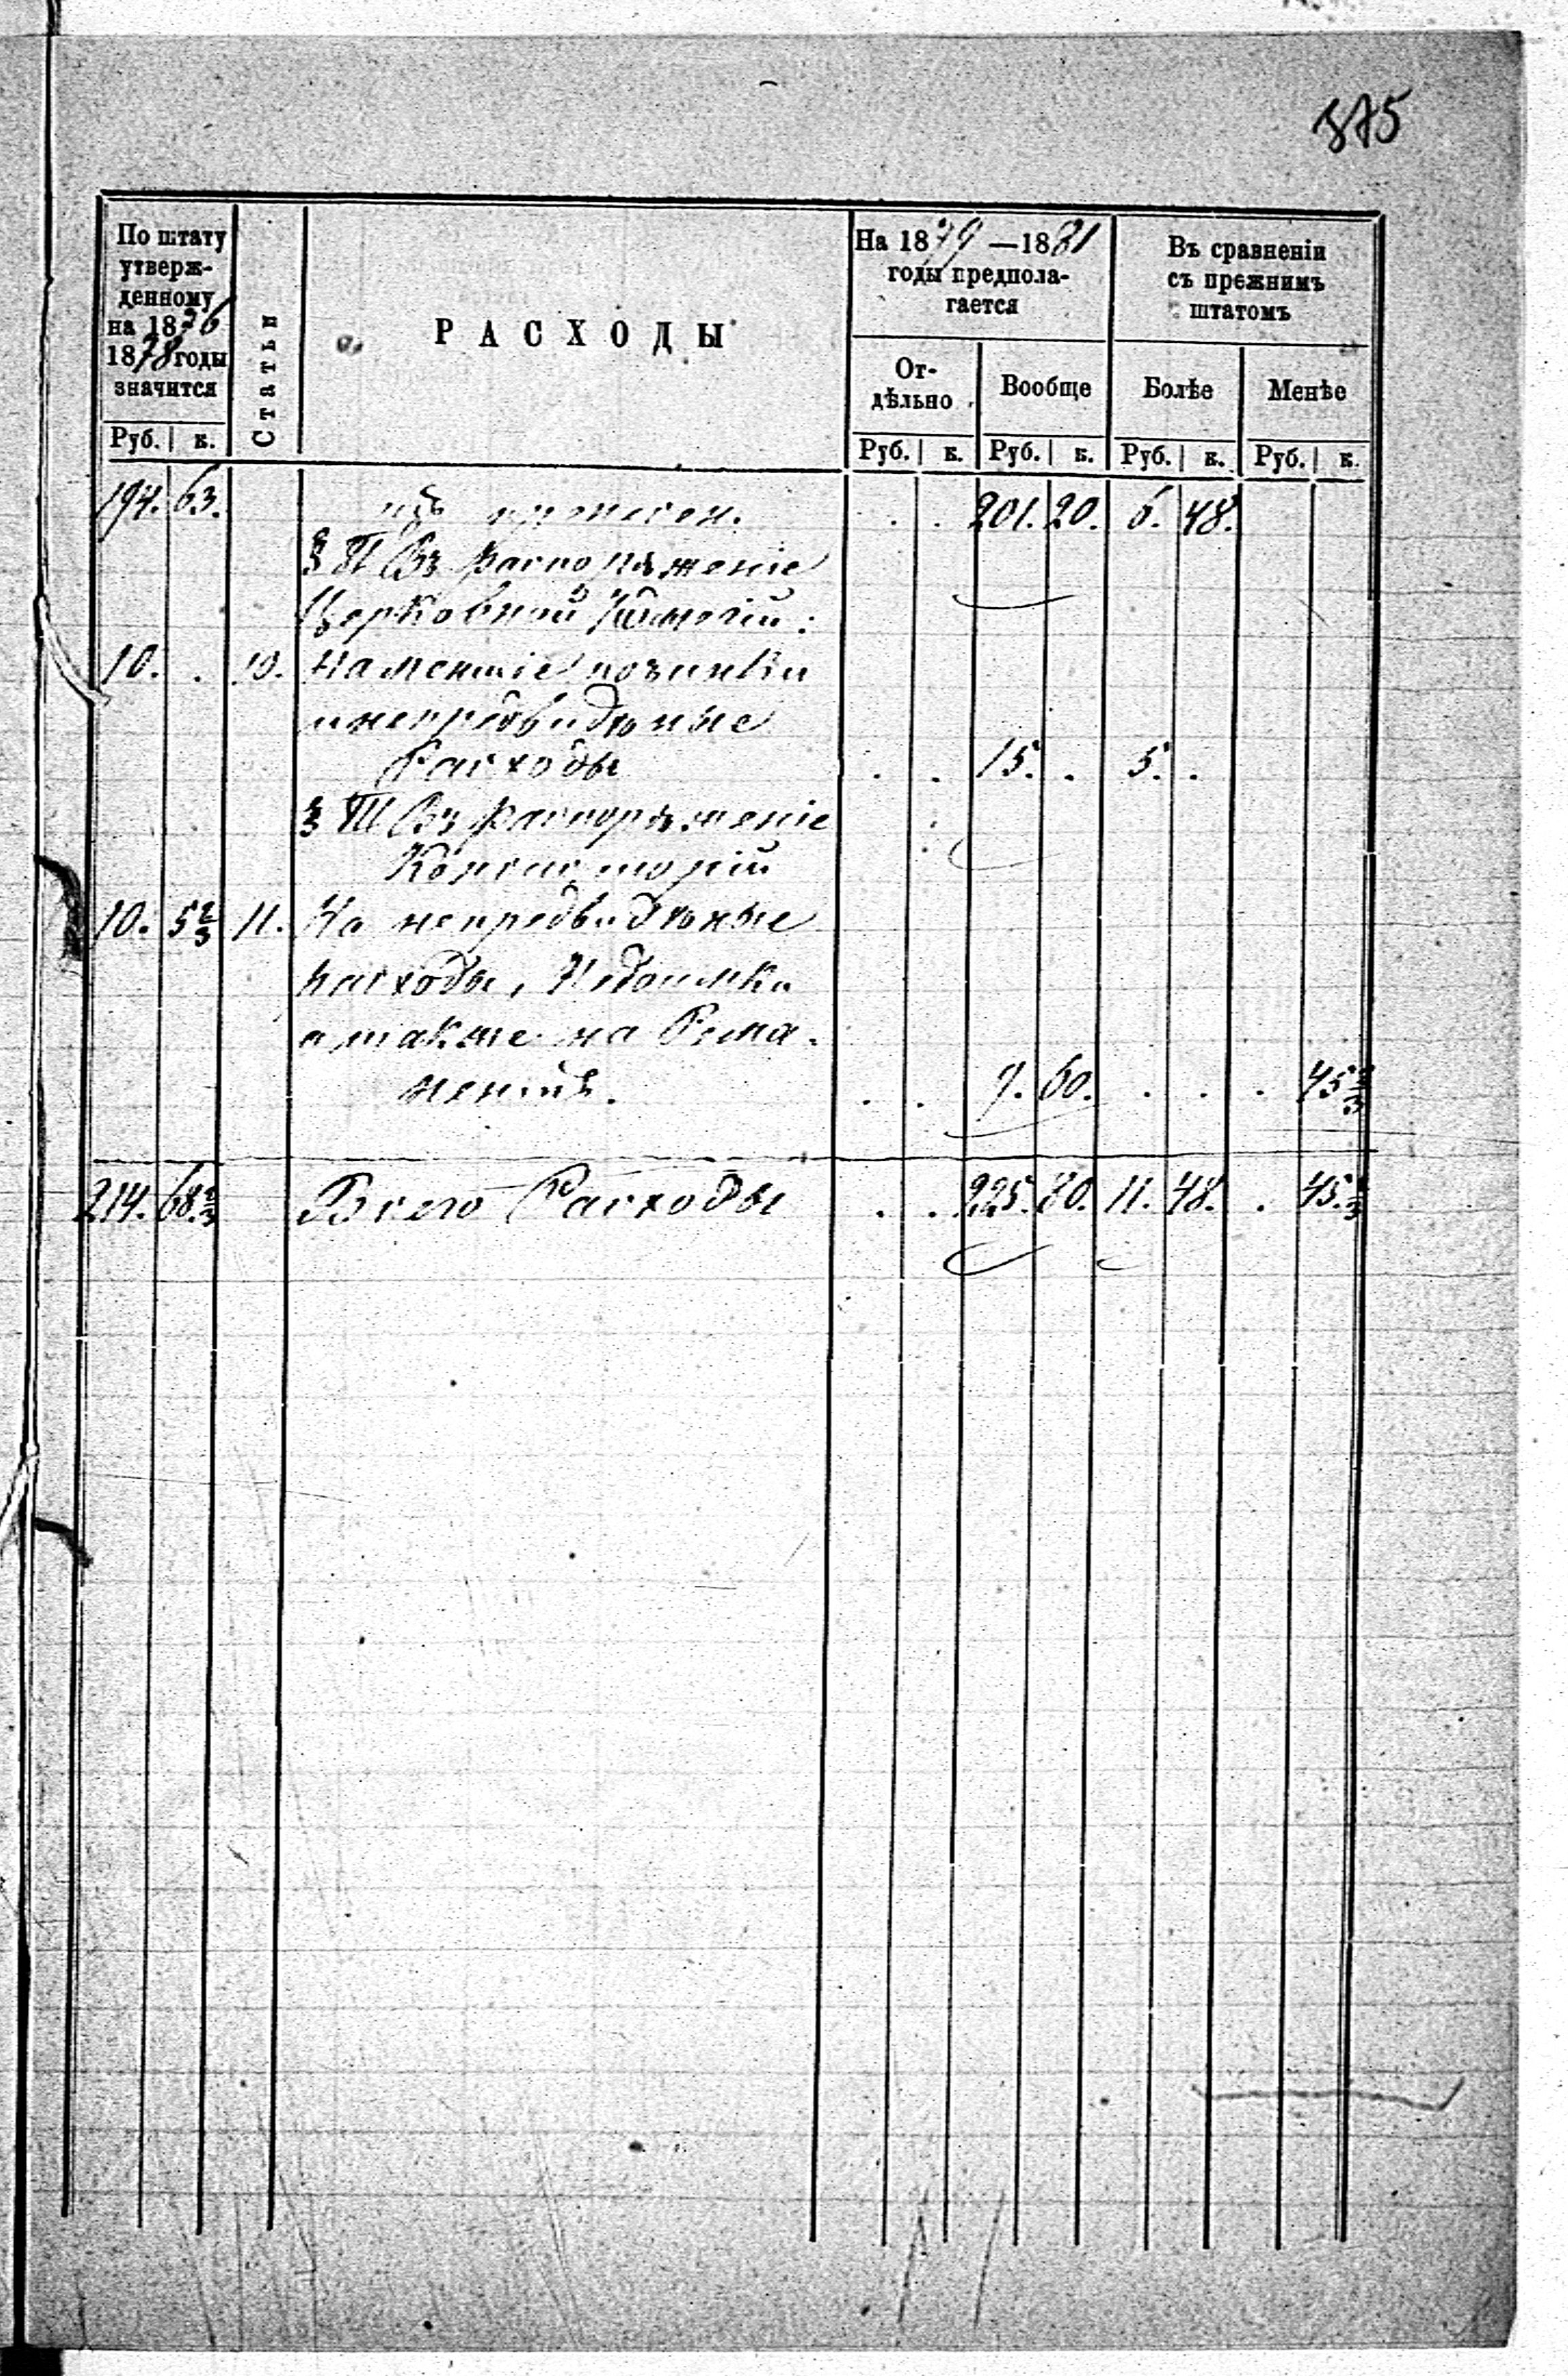 875
По штату утвержденному на 1876 1878 годы значится
Статьи
РАСХОДЫ
На 1879—1881 годы предполагается
Въ сравненіи съ прежнимъ штатомъ
Отдѣльно
Вообще
Болѣе
Менѣе
Руб. к. Руб. к. Руб. к. Руб. к. Руб. к.
194. 63. . . 201. 20. 6. 48.
§ II Въ распоряженіе
Церковной
10. . 10. На меншіе починки
и непредвидѣные
Расходы . . 15. . 5. .
§ III Въ распоряженіе
Консисторіи
10. 5 2/3 11. На непредвидѣные
расходы, Недоимки
а также на Рема-
нентъ. . . 9. 60. . . . 45 2/3
214. 68. 2/3 Всего Расходы . . 225. 80. 11. 48. . 45. 2/3